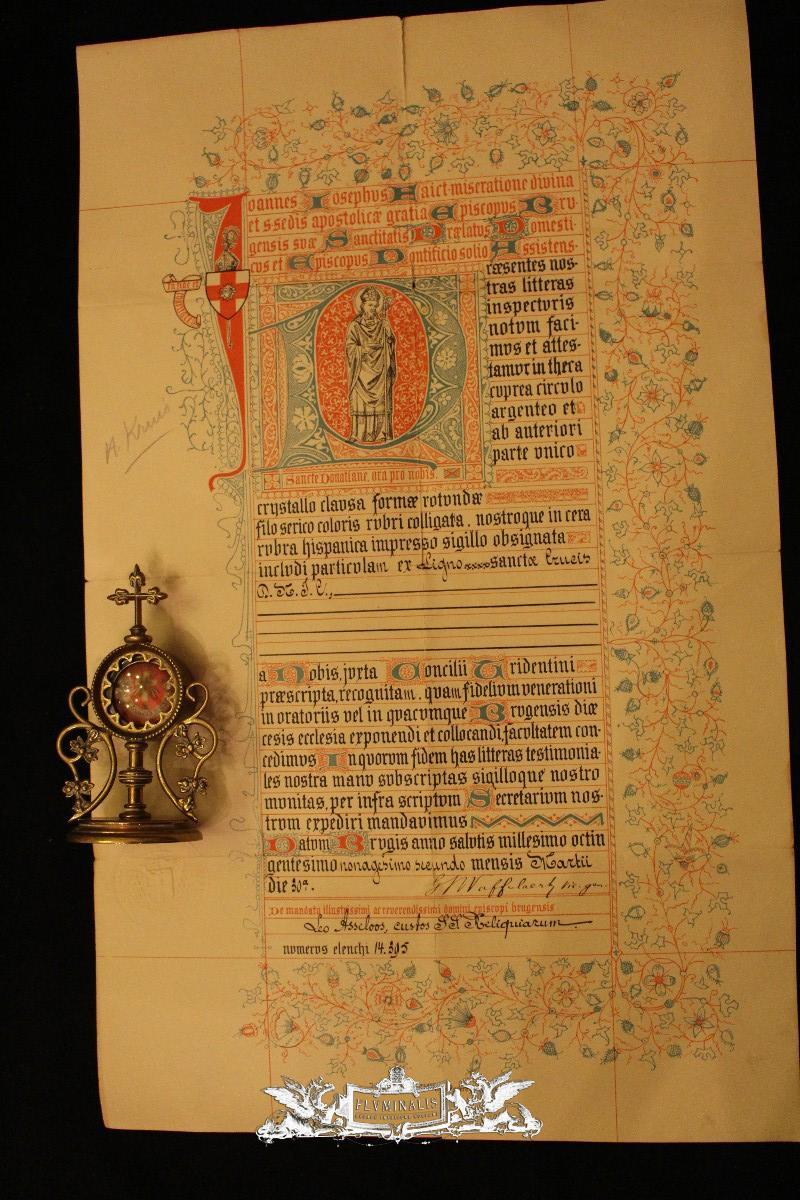 Ioannes Iosephvs Faict miseratione divina
et s·sedis apostolicæ gratia Episcopvs Brv
gensis svæ Sanctitatis Prælatvs Domesti
cvs et Episcopvs Pontificio solio Assistens·
Præsentes nos-
tras litteras
inspectvris
notvm faci-
mvs et attes-
tamvr in theca
cvprea circvlo
argenteo et
ab anteriori
parte vnico
Sancte Donatiane, ora pro nobis.
A. Kruis
crystallo clavsa formæ rotvndæ
filo serico coloris rvbri colligata, nostroque in cera
rvbra hispanica impresso sigillo obsignata
inclvdi particvlam ex Ligno sanctæ Crucis
D. N. J. C.,
a Nobis, jvxta Concilii Tridentini
præscripta, recognitam, qvam fidelivm venerationi
in oratoriis vel in qvacvmqve Brvgensis diœ
cesis ecclesia exponendi et collocandi, facvltatem con-
cedimvs In qvorvm fidem has litteras testimonia-
les nostra manv svbscriptas sigilloqve nostro
mvnitas, per infra scriptvm Secretarivm nos-
trvm expediri mandavimvs
Datvm Brvgis anno salvtis millesimo octin
gentesimo nonagesimo secundo mensis Martii
die 30ª. G J Waffelaert vic. gen.
De mandato illustrissimi ac reverendissimi domini episcopi brugensis
Leo Asseloos, custos SS. Reliquiarum.
nvmervs elenchi 14.395
FLVMINALIS